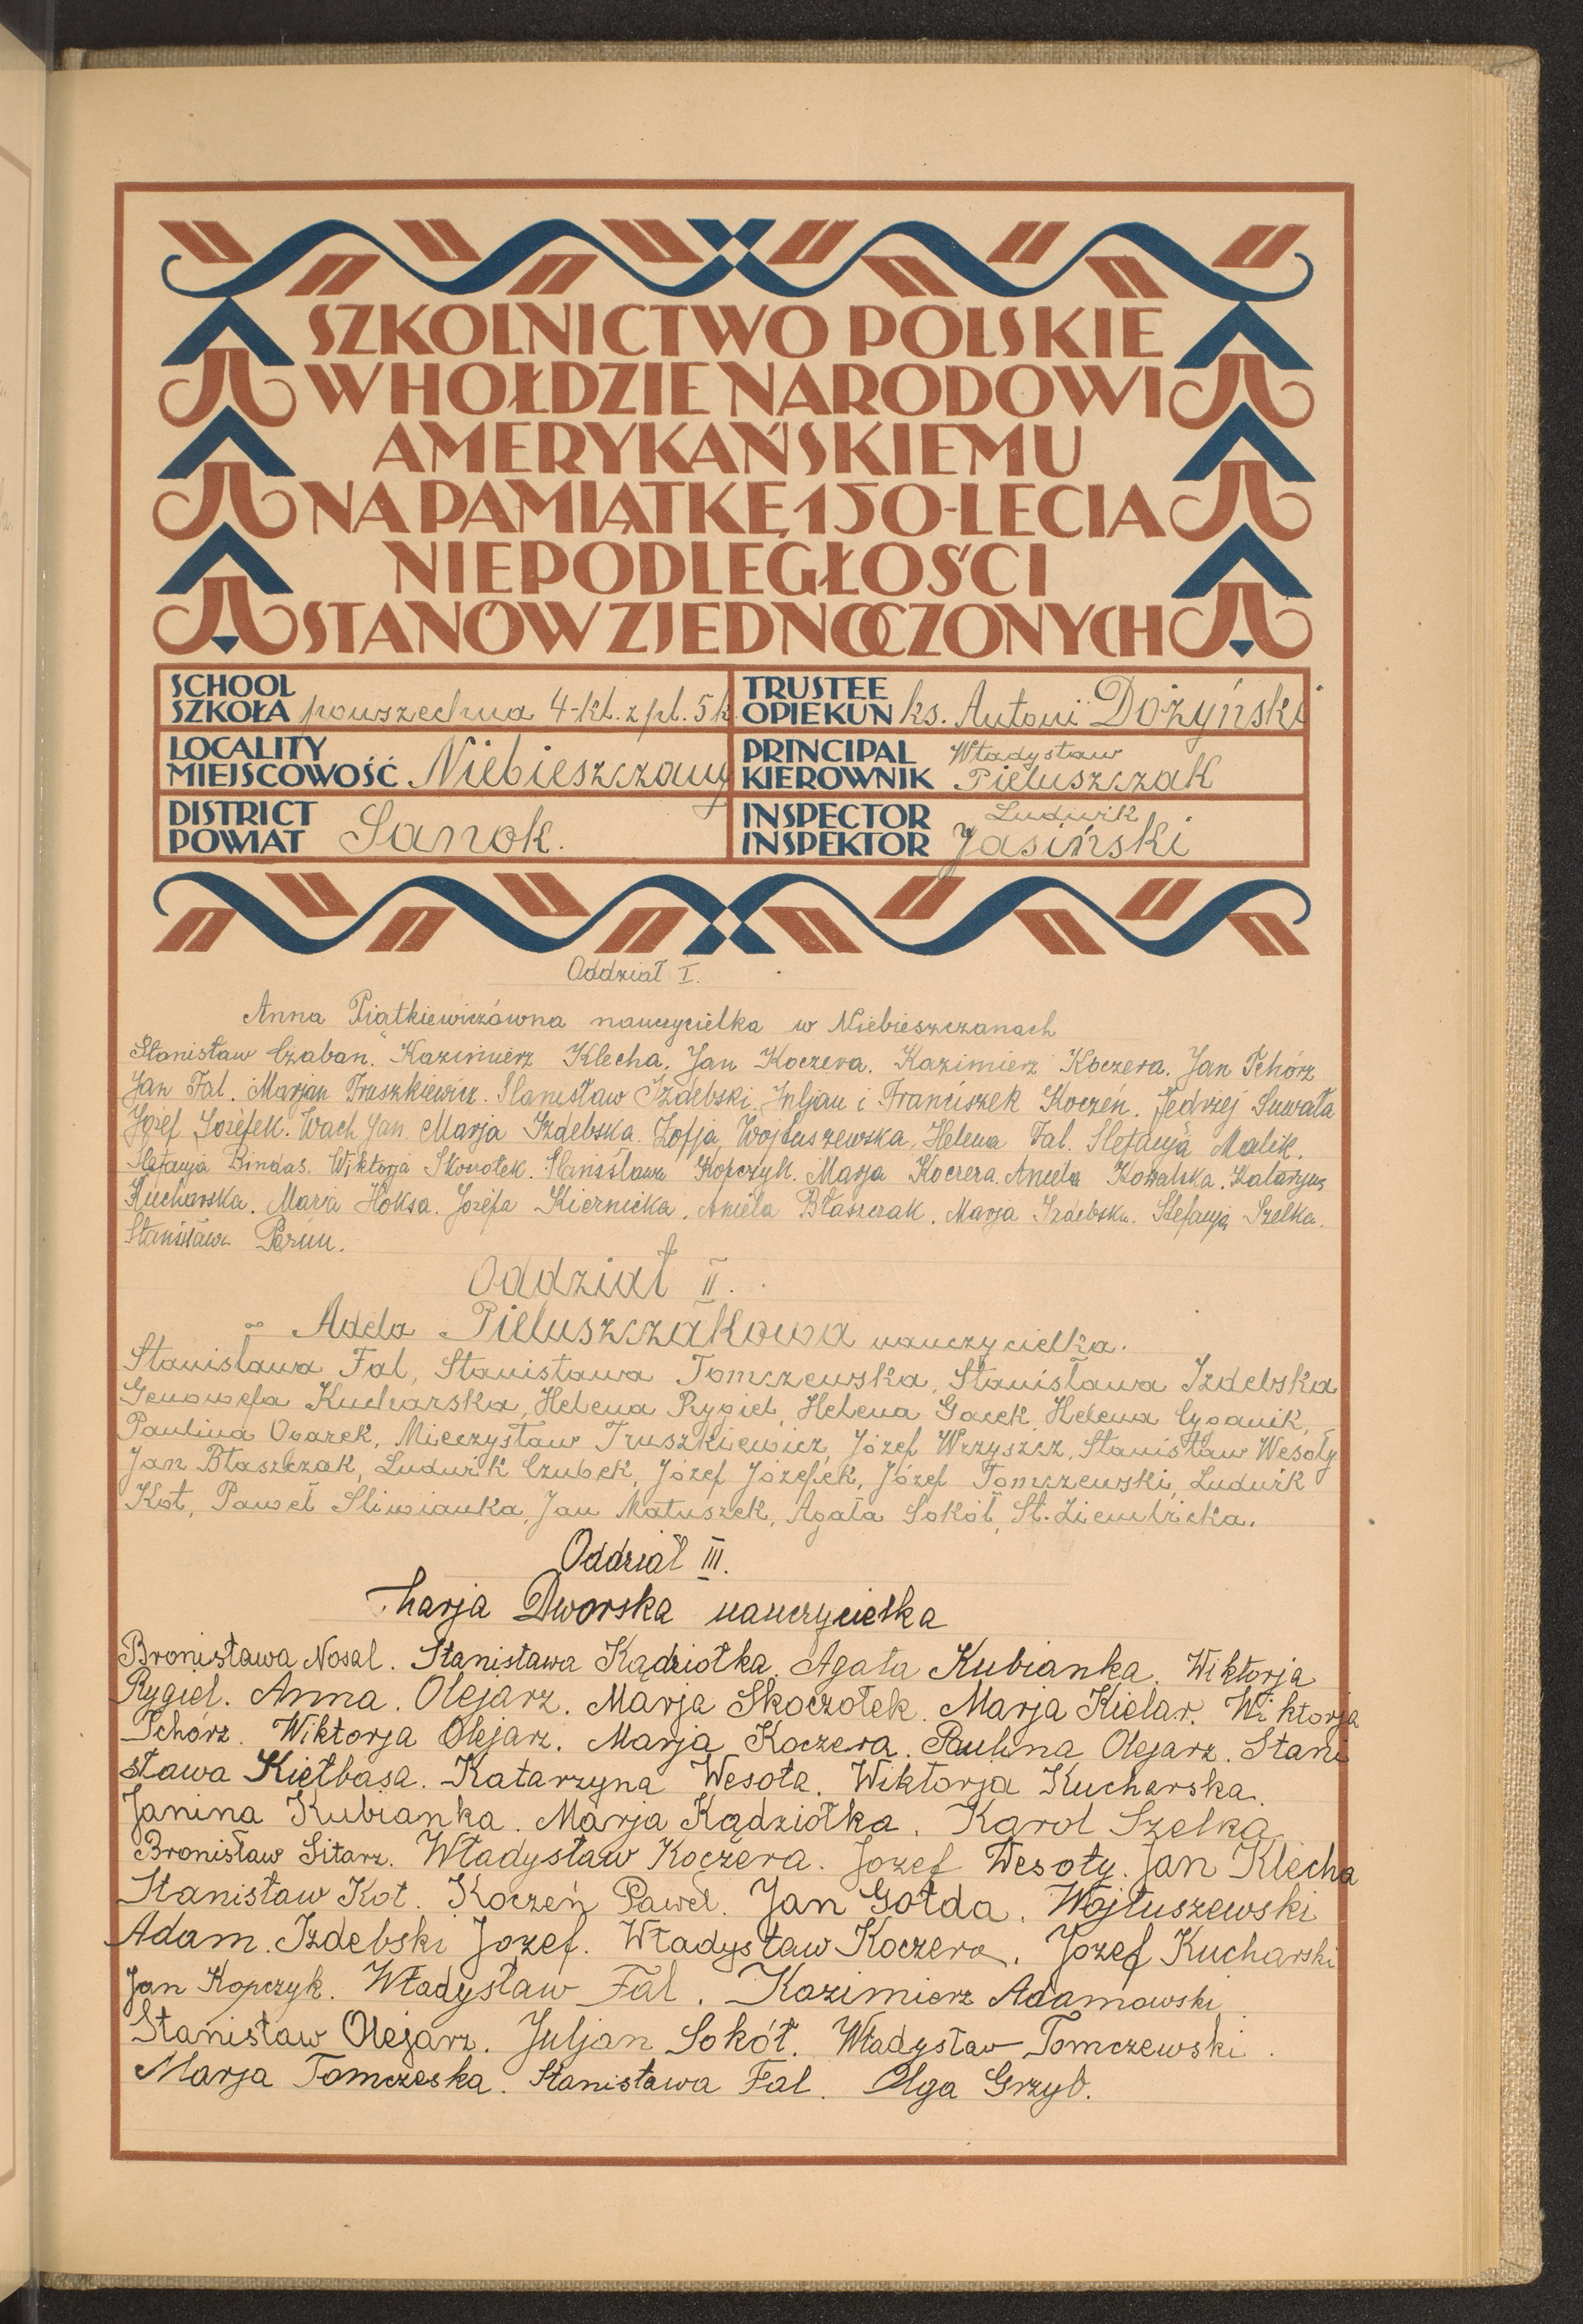 SZKOLNICTWO POLSKIE
W HOŁDZIE NARODOWI
AMERYKAŃSKIEMU
NA PAMIĄTKĘ 150-LECIA
NIEPODLEGŁOŚCI
STANÓW ZJEDNOCZONYCH
SCHOOL
SZKOŁA powszechna 4-kl. z pl. 5 k.
TRUSTEE
OPIEKUN ks. Antoni Dożyński
LOCALITY
MIEJSCOWOŚĆ Niebieszczany
PRINCIPAL Władysław
KIEROWNIK Pieluszczak
DISTRICT
POWIAT Sanok.
INSPECTOR Ludwik
INSPEKTOR Jasiński
Oddział I.
Anna Piątkiewiczówna nauczycielka w Niebieszczanach
Stanisław Czaban. Kazimierz Klecha. Jan Koczera. Kazimierz Koczera. Jan Tchórz
Jan Fal. Marjan Truszkiewicz. Stanisław Izdebski. Juljan i Franciszek Koczeń. Jędrzej Suwała
Józef Józefek. Wach Jan. Marja Izdebska. Zofja Wojtuszewska. Helena Fal. Stefanja Malik.
Stefanja Bindas. Wiktorja Skoczołek. Stanisława Kopczyk. Marja Koczera. Aniela Kowalska. Katarzyna
Kucharska. Marja Hoksa. Józefa Kiernicka. Aniela Błaszczak. Marja Izdebska. Stefanja Szelka.
Stanisława
Oddział II.
Adela Pieluszczakowa nauczycielka.
Stanisława Fal, Stanisława Tomczewska, Stanisława Izdebska
Genowefa Kucharska, Helena Rygiel, Helena Gacek, Helena Cyganik,
Paulina Ogarek, Mieczysław Truszkiewicz, Józef Wrzyszcz, Stanisław Wesoły
Jan Błaszczak, Ludwik Czubek, Józef Józefek, Józef Tomczewski, Ludwik
Kot, Paweł Sliwianka, Jan Matuszek, Agata Sokół, St. Ziembicka.
Oddział III.
Marja Dworska nauczycielka
Bronisława Nosal. Stanisława Kądziołka. Agata Kubianka. Wiktorja
Rygiel. Anna. Olejarz. Marja Skoczołek. Marja Kielar. Wiktorja
Tchórz. Wiktorja Olejarz. Marja Koczera. Paulina Olejarz. Stani
sława Kiełbasa. Katarzyna Wesoła. Wiktorja Kucharska.
Janina Kubianka. Marja Kądziołka. Karol Szelka
Bronisław Sitarz. Władysław Koczera. Jozef Wesoły. Jan Klecha
Stanisław Kot. Koczeń Paweł. Jan Gołda. Wojtuszewski
Adam. Izdebski Jozef. Władysław Koczera. Jozef Kucharski
Jan Kopczyk. Władysław Fal. Kazimierz Adamowski
Stanisław Olejarz. Juljan Sokół. Władysław Tomczewski.
Marja Tomczeska. Stanisława Fal. Olga Grzyb.